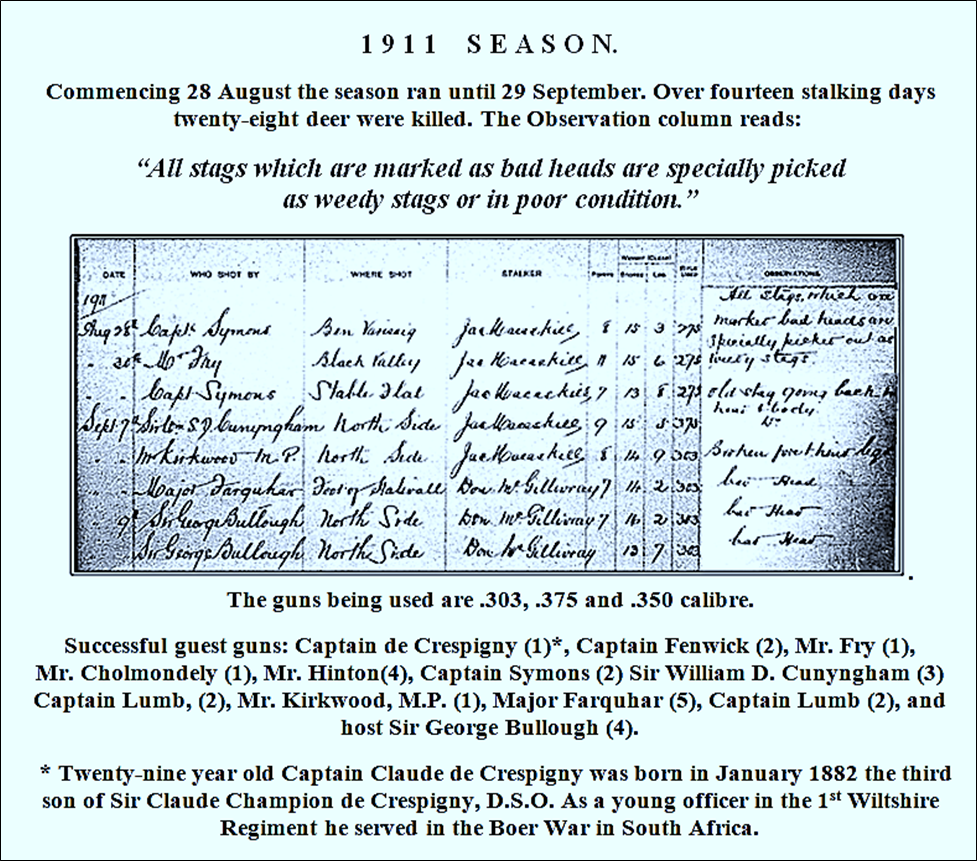 1911 SEASON.
Commencing 28 August the season ran until 29 September. Over fourteen stalking days
twenty-eight deer were killed. The Observation column reads:
“All stags which are marked as bad heads are specially picked
as weedy stags or in poor condition.”
DATE WHO SHOT BY WHERE SHOT STALKER POINTS WEIGHT (CLEAN) STONES LBS. RIFLE USED OBSERVATIONS
1911 All stags, which are
Aug 28th Capt. Symons Ben Jas Macaskill 8 15 3 .275 marked bad heads are
specially picked out as
" 30th Mr Fry Black Valley Jas Macaskill 11 15 6 .275 weedy stags.
" " Capt Symons Stable Flat Jas Macaskill 7 13 8 .275 old stag going back in
horn & body
Sept. 7th S.D. Cunyngham North Side Jas Macaskill 9 15 5 .375
" " Mr Kirkwood M.P. North Side Jas Macaskill 8 14 9 .303 Broken fore & hind legs
" " Major Farquhar Foot of Don McGillivray 7 14 2 .303 bad Head
" 9th Sir George Bullough North Side Don McGillivray 7 16 2 .303 bad Head
Sir George Bullough North Side Don McGillivray 13 7 .303 bad Head
The guns being used are .303, .375 and .350 calibre.
Successful guest guns: Captain de Crespigny (1)*, Captain Fenwick (2), Mr. Fry (1),
Mr. Cholmondely (1), Mr. Hinton(4), Captain Symons (2) Sir William D. Cunyngham (3)
Captain Lumb, (2), Mr. Kirkwood, M.P. (1), Major Farquhar (5), Captain Lumb (2), and
host Sir George Bullough (4).
* Twenty-nine year old Captain Claude de Crespigny was born in January 1882 the third
son of Sir Claude Champion de Crespigny, D.S.O. As a young officer in the 1st Wiltshire
Regiment he served in the Boer War in South Africa.